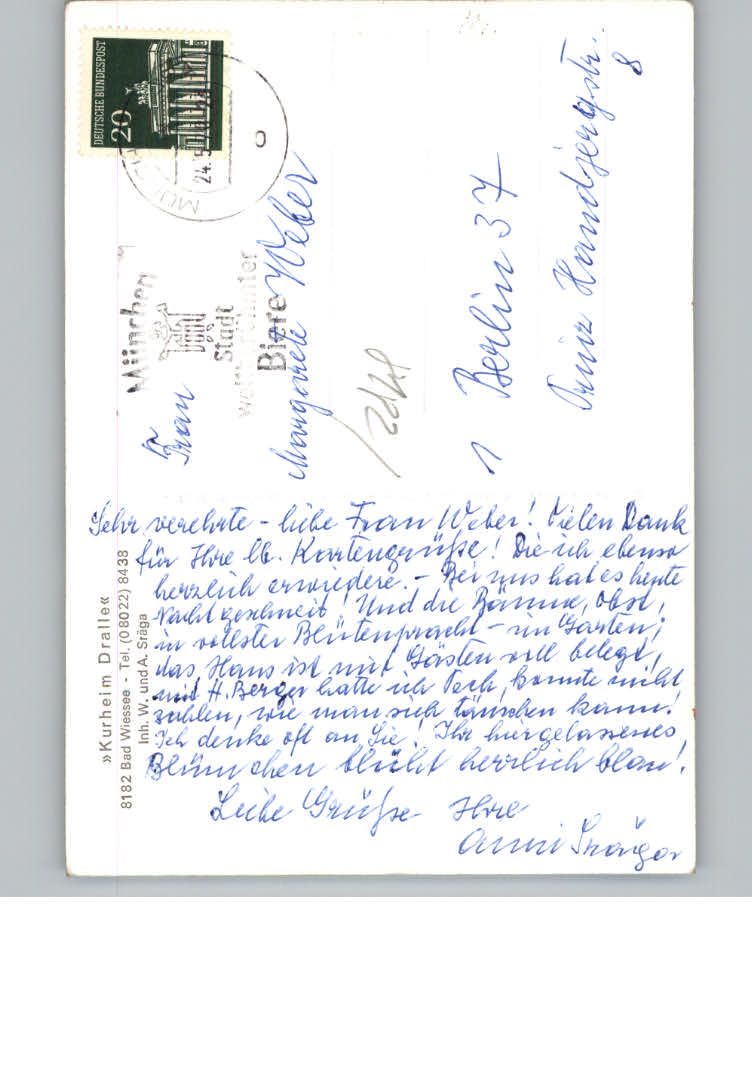 Sehr verehrte - liebe Frau Weber! Vielen Dank
für Ihre lb. Kartengrüße! Die ich ebenso
herzlich erwiedere. - Bei uns hat es heute
Nacht geschneit! Und die Bäume, Obst,
in vollster Blütenpracht - im Garten;
das Haus ist mit Gästen voll belegt,
mit H. Berger hatte ich Pech, konnte nicht
zahlen, wie man sich täuschen kann!
Ich denke oft an Sie! Ihr hiergelassenes
Blümchen blüht herrlich blau!
Liebe Grüße Ihre
Anni Sräga
»Kurheim Dralle«
8182 Bad Wiessee - Tel. (08022) 8438
Inh. W. und A. Sräga
Frau
Margarete Weber
1 Berlin 37
Prinz Handjerystr.
8
DEUTSCHE BUNDESPOST
20
24.5
München
Stadt
Biere